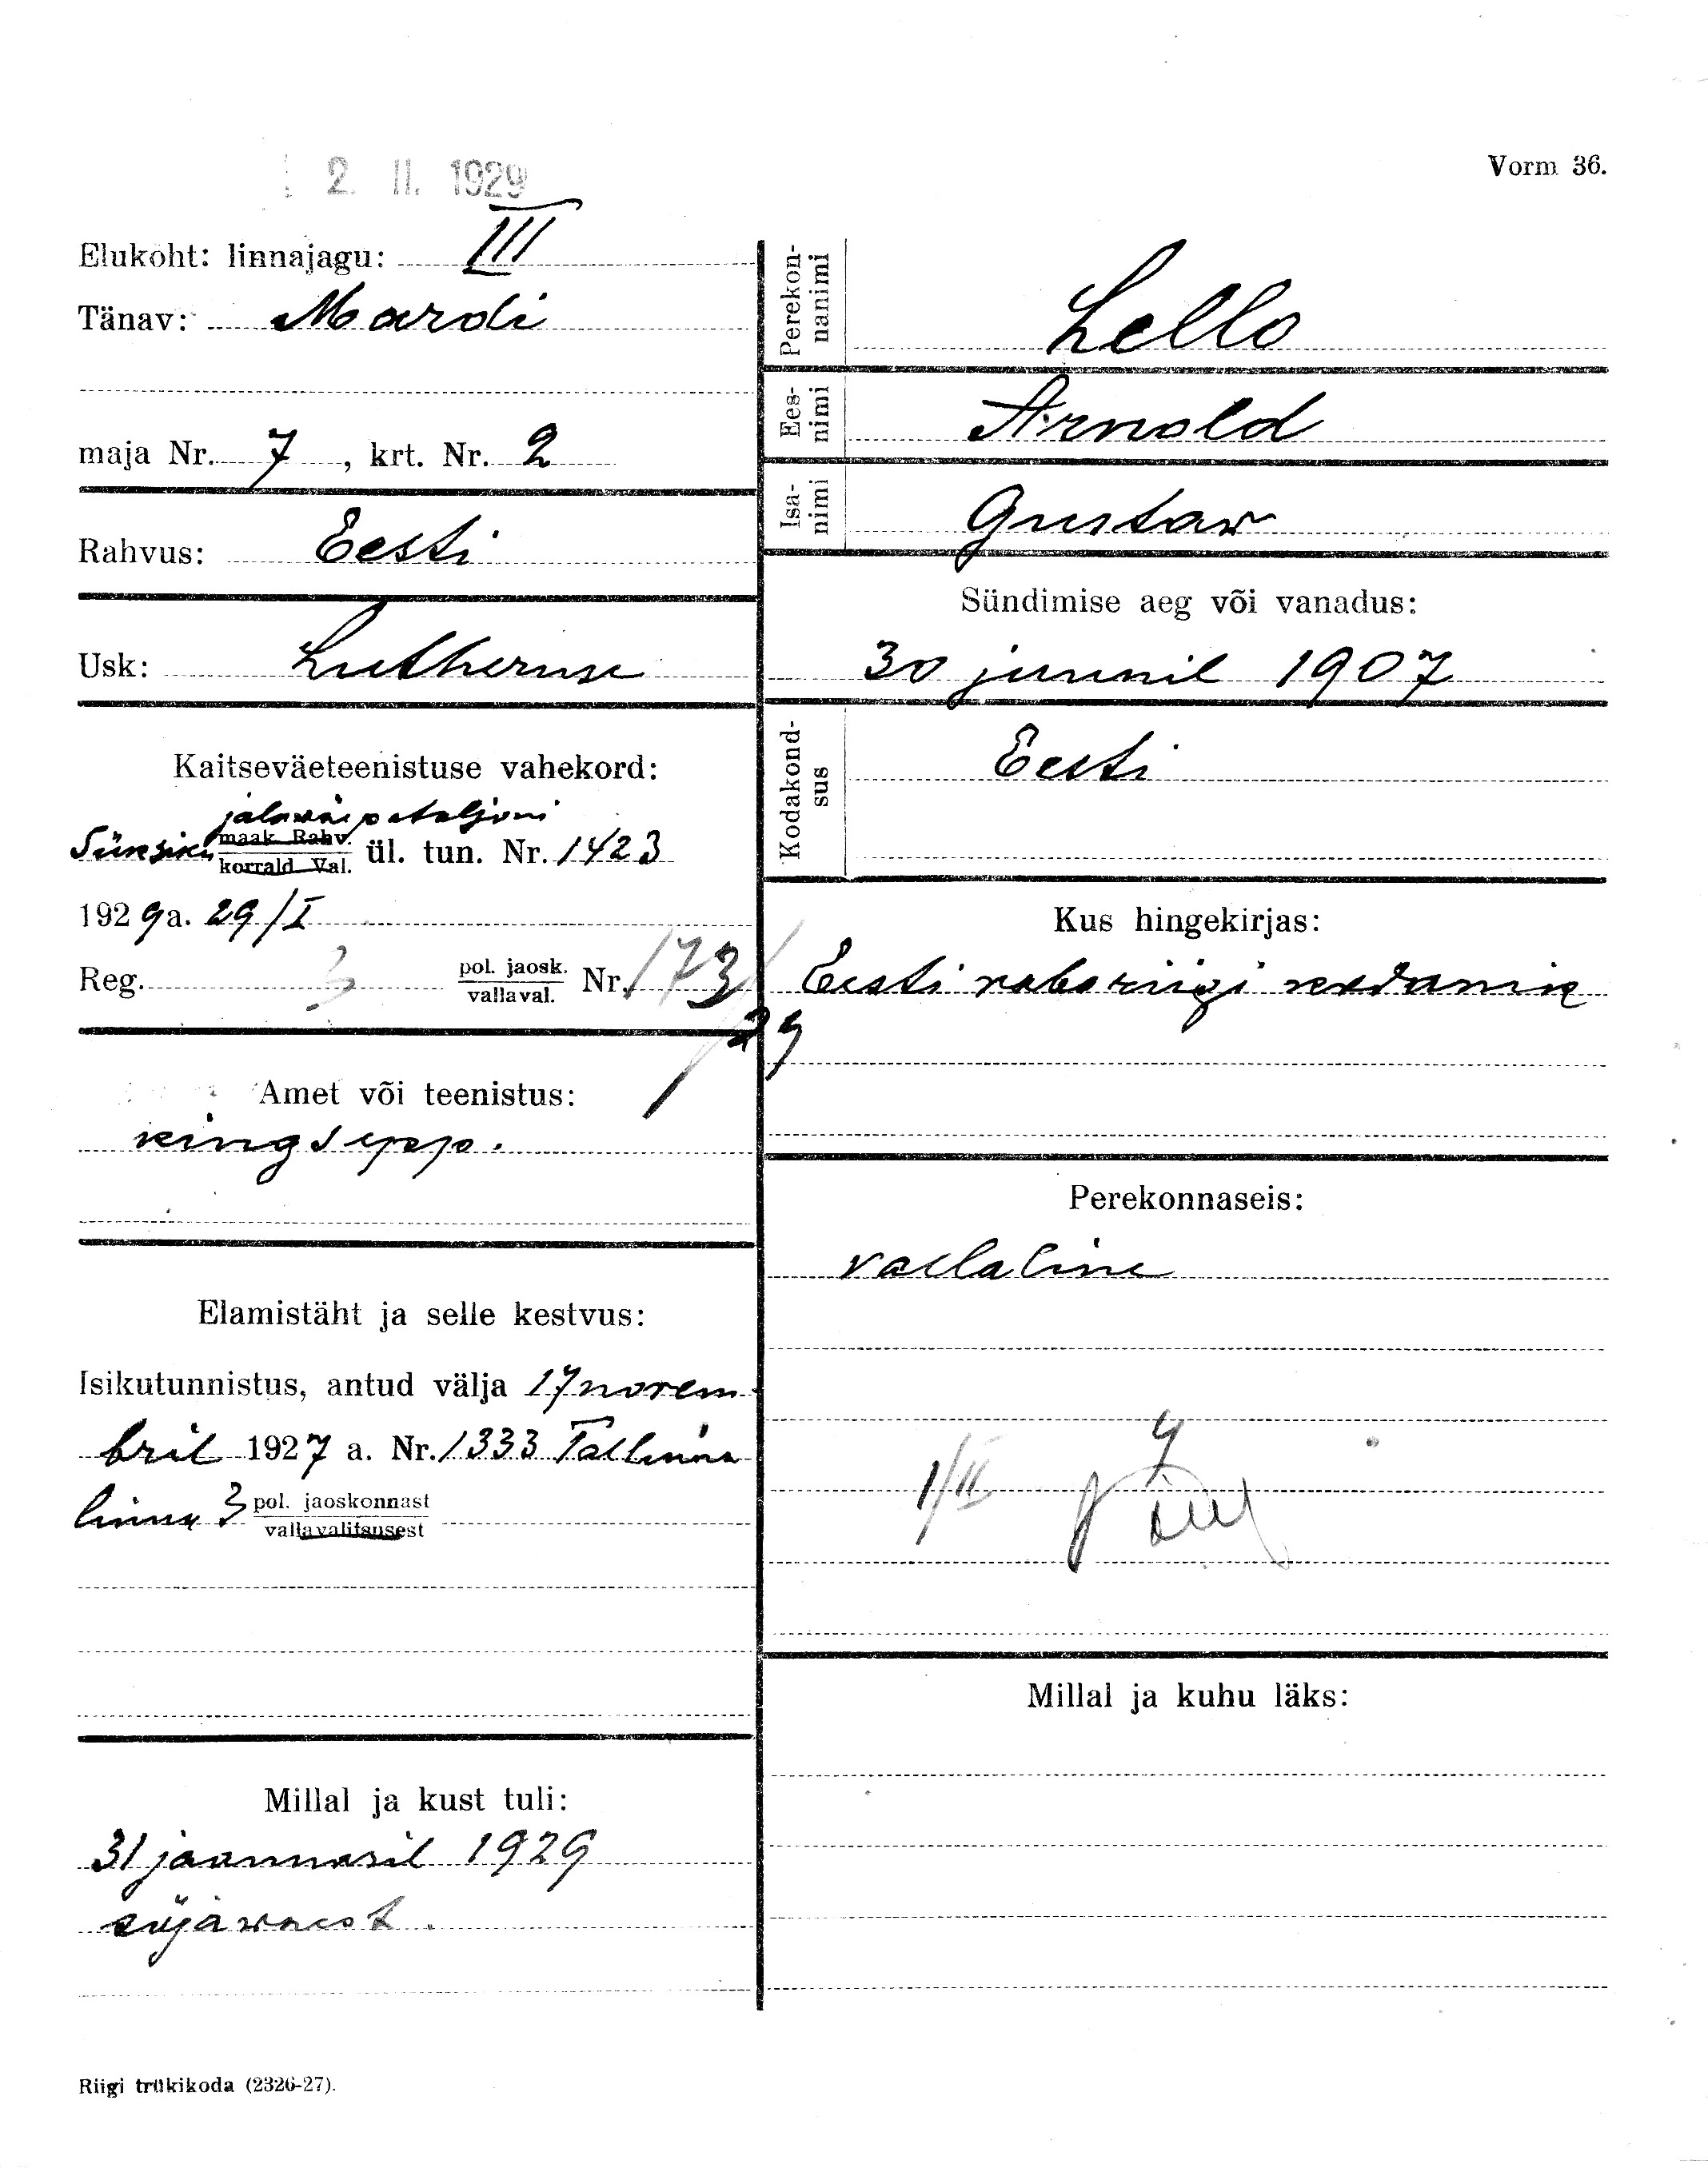 2. II. 1929
Vorm 36.
Elukoht: linnajagu: III
Tänav: Mardi
maja Nr. 7, krt. Nr. 2
Rahvus: Eesti
Usk: Lutheruse
Kaitseväeteenistuse vahekord:
jalaväepataljoni
Üksiku maak. Rahv. korrald. Val. ül. tun. Nr. 1423
1929 a. 29/I
Reg. 3 pol. jaosk. vallaval. Nr. 173/29
Amet või teenistus:
kingsepp.
Elamistäht ja selle kestvus:
Isikutunnistus, antud välja 17 novem-
bril 1927 a. Nr. 1333 Tallinna
linna 3 pol. jaoskonnast vallavalitsusest
Millal ja kust tuli:
31 jaanuaril 1929
sõjaväest.
Perekon-
nanimi
Lello
Ees-
nimi
Arnold
Isa-
nimi
Gustav
Sündimise aeg või vanadus:
30 juunil 1907
Kodakond-
sus
Eesti
Kus hingekirjas:
Eesti vabariigi kodanik
Perekonnaseis:
vallaline
1/II
Millal ja kuhu läks:
Riigi trükikoda (2326-27).